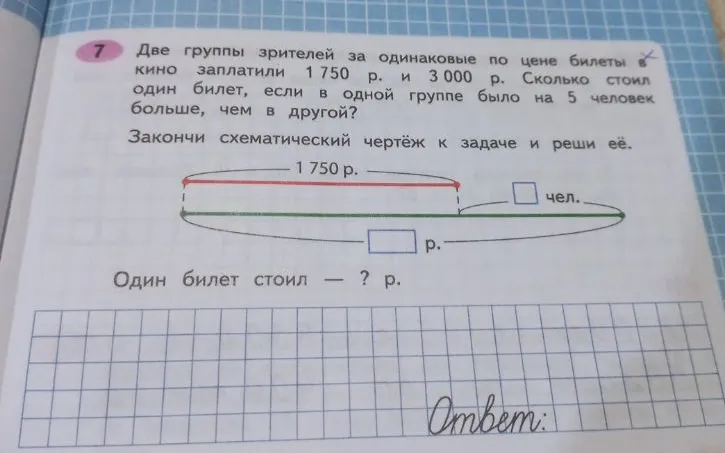 7 Две группы зрителей за одинаковые по цене билеты в
кино заплатили 1 750 р. и 3 000 р. Сколько стоил
один билет, если в одной группе было на 5 человек
больше, чем в другой?
Закончи схематический чертёж к задаче и реши её.
1 750 р.
чел.
р.
Один билет стоил — ? р.
Ответ: